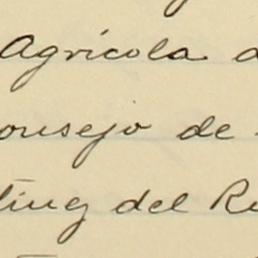 Agrícola
onsejo de
ting del